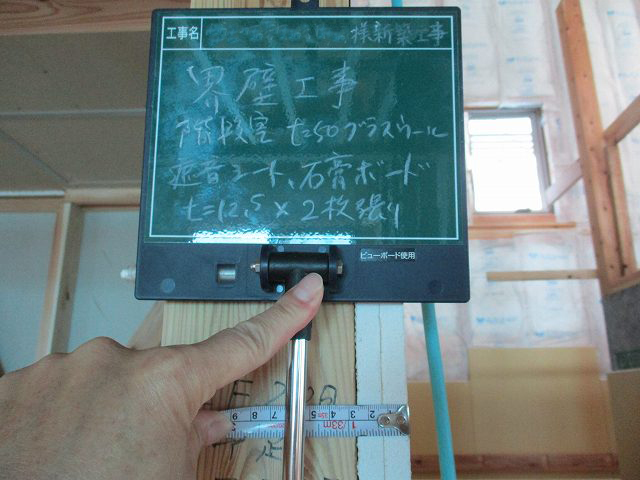 工事名 様新築工事
界壁工事
t=50グラスウール
遮音シート、石膏ボード
t=12.5×2枚張り
ビューボード使用
9 8 7 5 4 3 2
1/33m